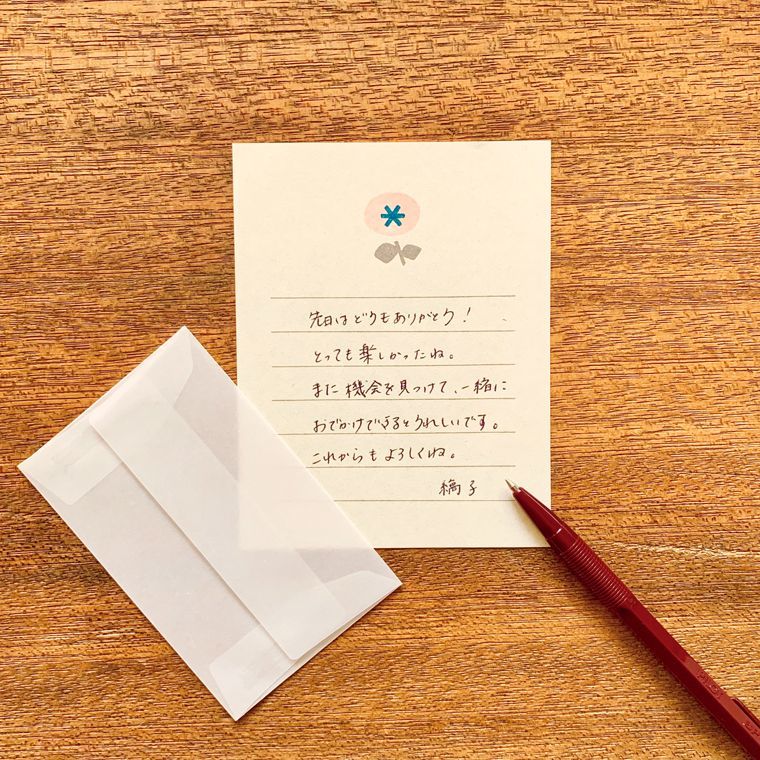 先日はどうもありがとう!
とっても楽しかったね。
また機会を見つけて、一緒に
おでかけできるとうれしいです。
これからもよろしくね。
縞子